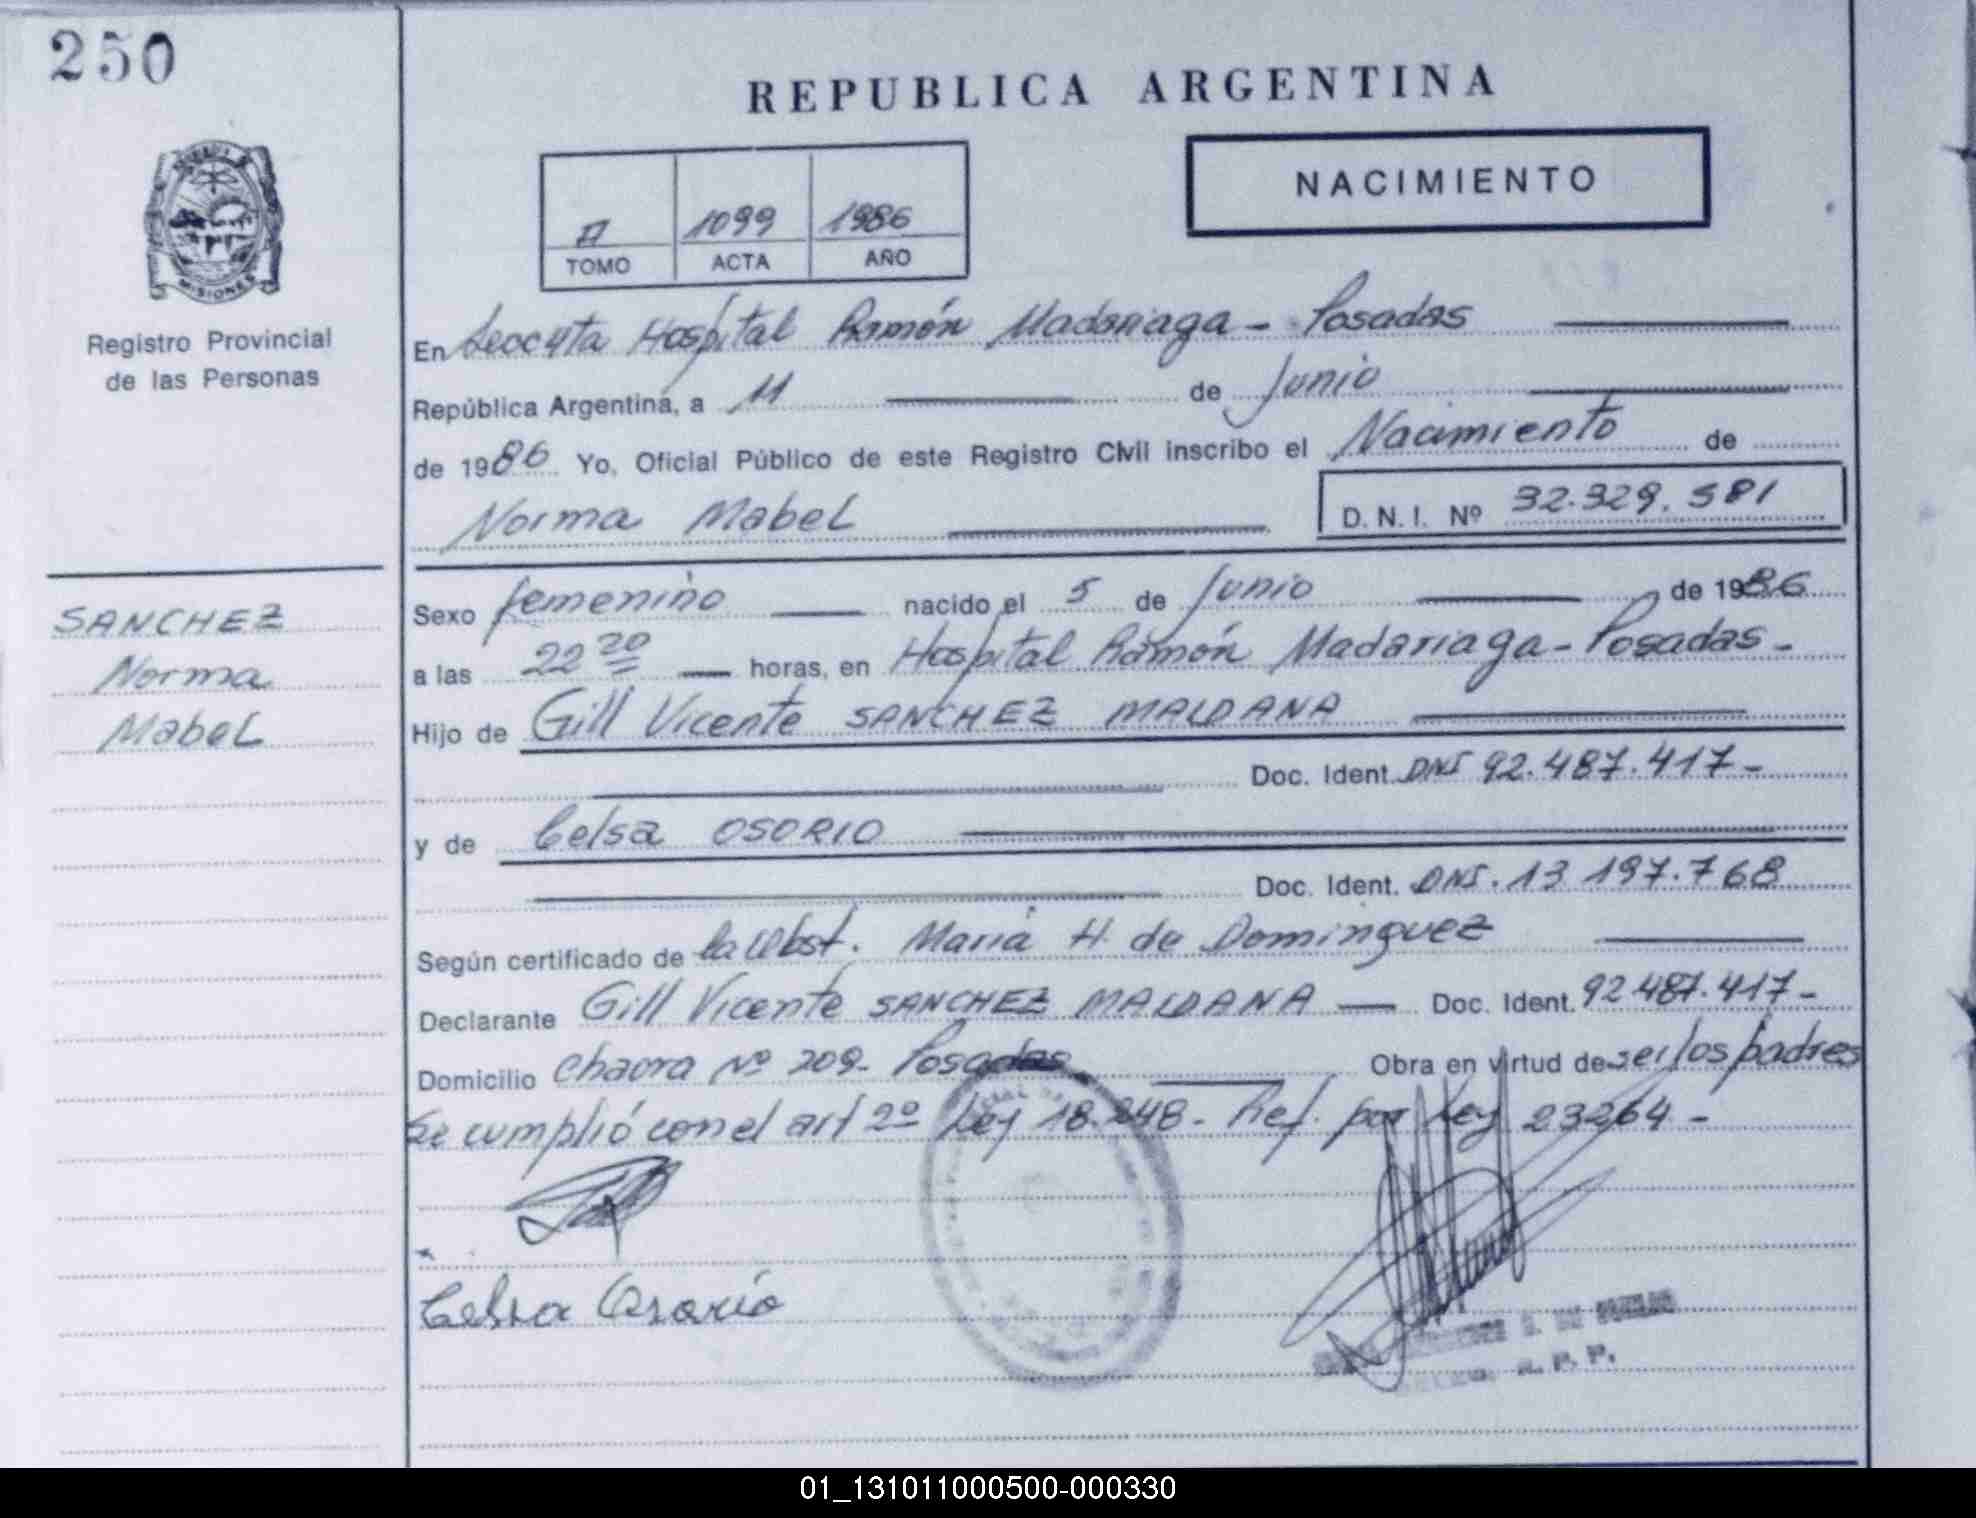 250
REPUBLICA ARGENTINA
NACIMIENTO
II 1099 1986
TOMO ACTA AÑO
MISIONES
Registro Provincial
de las Personas
En Seccyta Hospital Ramón Madariaga - Posadas
República Argentina, a 11 de Junio
de 1986 Yo, Oficial Público de este Registro Civil inscribo el Nacimiento de
Norma Mabel D.N.I. Nº 32.329.581
SANCHEZ
Norma
Mabel
Sexo femenino nacido el 5 de Junio de 1986
a las 22 20 horas, en Hospital Ramón Madariaga - Posadas -
Hijo de Gill Vicente SANCHEZ MALDANA
Doc. Ident. DNI 92.487.417-
y de Celsa OSORIO
Doc. Ident. DNI. 13 197.768
Según certificado de la Obst. Maria H. de Dominguez
Declarante Gill Vicente SANCHEZ MALDANA Doc. Ident. 92.487.417-
Domicilio Chacra Nº 209- Posadas Obra en virtud de ser los padres
Se cumplió con el art 2º Ley 18.248 - Ref. por Ley 23264 -
Celsa Osorio
01_131011000500-000330